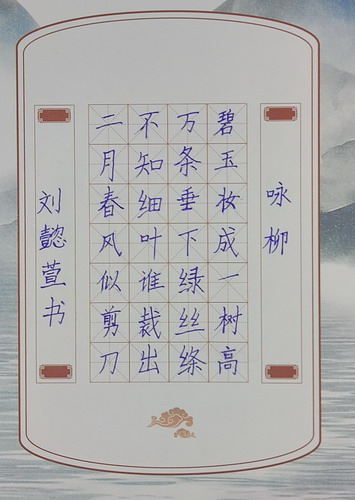 咏柳
碧玉妆成一树高
万条垂下绿丝绦
不知细叶谁裁出
二月春风似剪刀
刘懿萱书